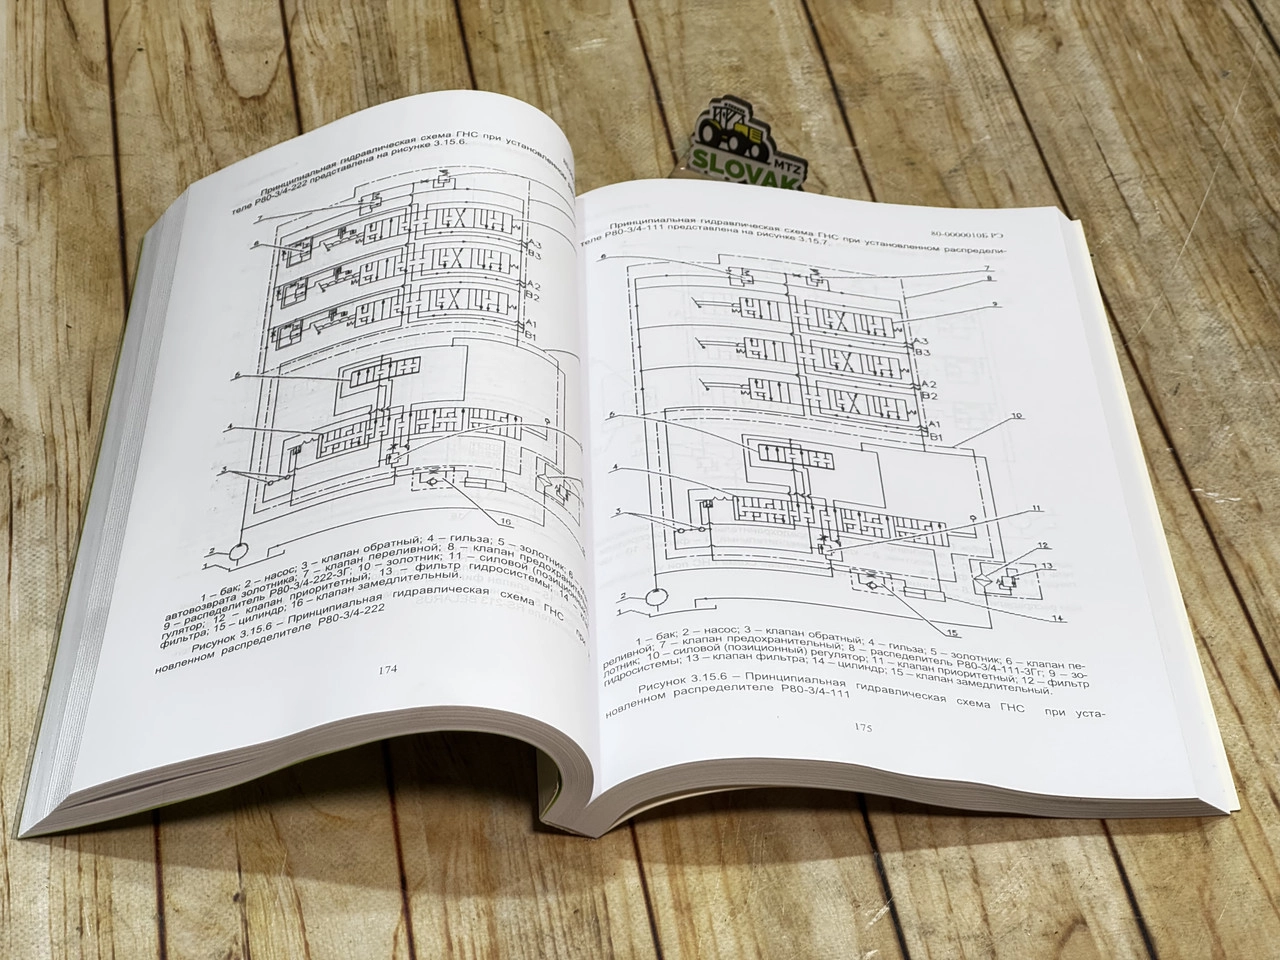 Принципиальная гидравлическая схема ГНС при установленном
теле Р80-3/4-222 представлена на рисунке 3.15.6.
7
А3
В3
А2
В2
А1
В1
6
4
3
16
2
1
1 – бак; 2 – насос; 3 – клапан обратный; 4 – гильза; 5 – золотник; 6 –
автовозврата золотника; 7 – клапан переливной; 8 – клапан
9 – распеделитель Р80-3/4-222-3Г; 10 – золотник; 11 – силовой
гулятор; 12 – клапан приоритетный; 13 – фильтр гидросистемы; 14 –
фильтра; 15 – цилиндр; 16 – клапан замедлительный.
Рисунок 3.15.6 – Принципиальная гидравлическая схема ГНС
новленном распределителе Р80-3/4-222
174
MTZ
SLOVAK
80-0000010Б РЭ
Принципиальная гидравлическая схема ГНС при установленном распредели-
теле Р80-3/4-111 представлена на рисунке 3.15.7.
6
7
8
9
А3
В3
А2
В2
А1
В1
10
4
3
11
12
13
14
15
2
1
1 – бак; 2 – насос; 3 – клапан обратный; 4 – гильза; 5 – золотник; 6 – клапан пе-
реливной; 7 – клапан предохранительный; 8 – распеделитель Р80-3/4-111-3Гг; 9 – зо-
лотник; 10 – силовой (позиционный) регулятор; 11 – клапан приоритетный; 12 – фильтр
гидросистемы; 13 – клапан фильтра; 14 – цилиндр; 15 – клапан замедлительный.
Рисунок 3.15.6 – Принципиальная гидравлическая схема ГНС при уста-
новленном распределителе Р80-3/4-111
175